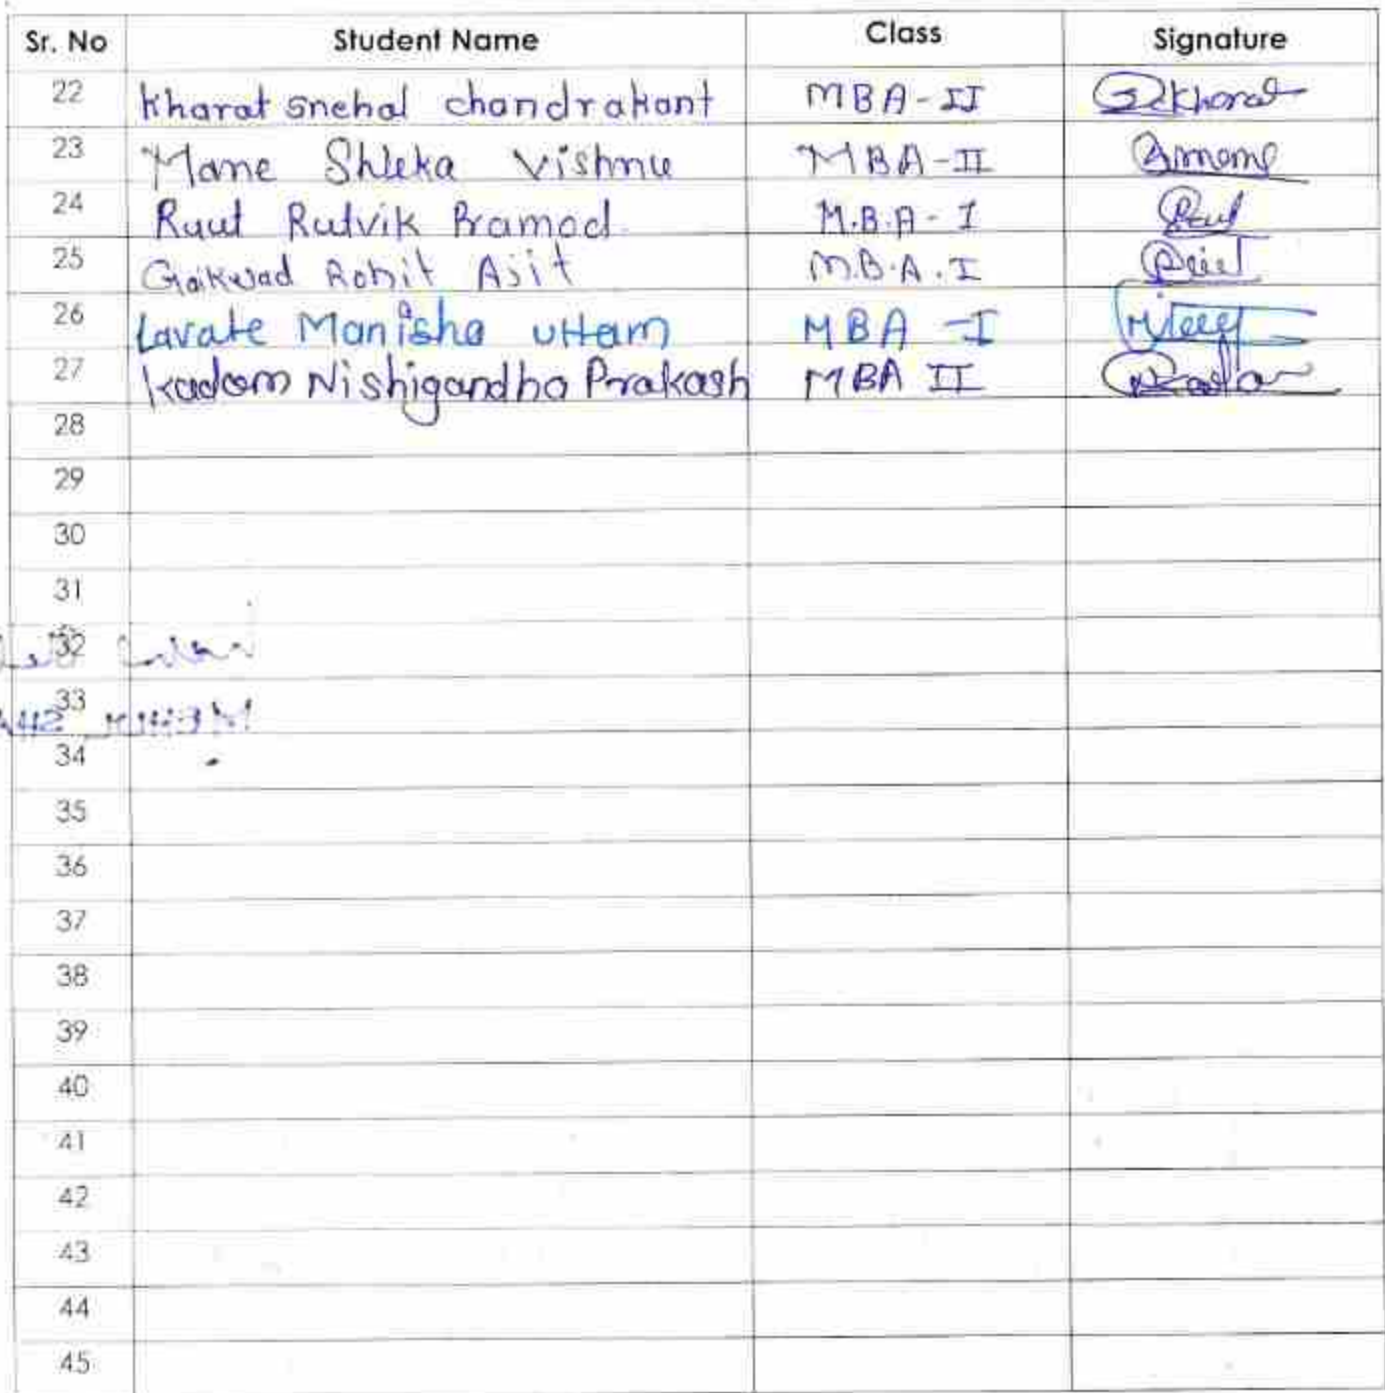 Sr. No Student Name Class Signature
22 Kharat snehal chandrakant MBA-II Skharat
23 Mane Shleka Vishnu MBA-II
24 Raut Rutvik Pramod M.B.A-I Raut
25 Gaikwad Rohit Ajit M.B.A.I
26 Lavate Manisha uttam MBA-I
27 Kadam Nishigandha Prakash MBA II
28
29
30
31
32
33
34
35
36
37
38
39
40
41
42
43
44
45